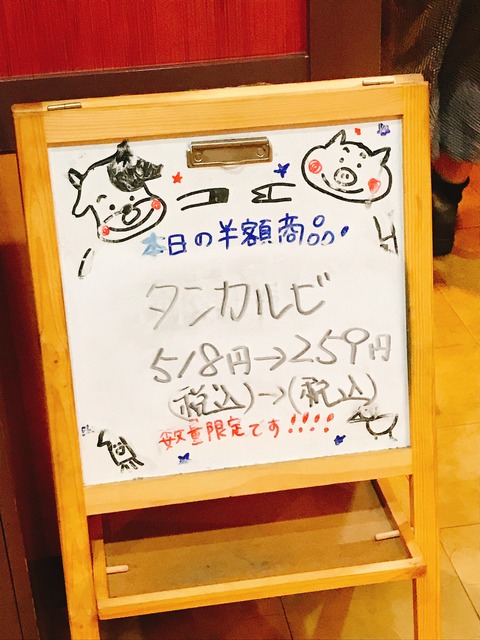 本日の半額商品!
タンカルビ
518円→259円
(税込)→(税込)
数量限定です!!!!